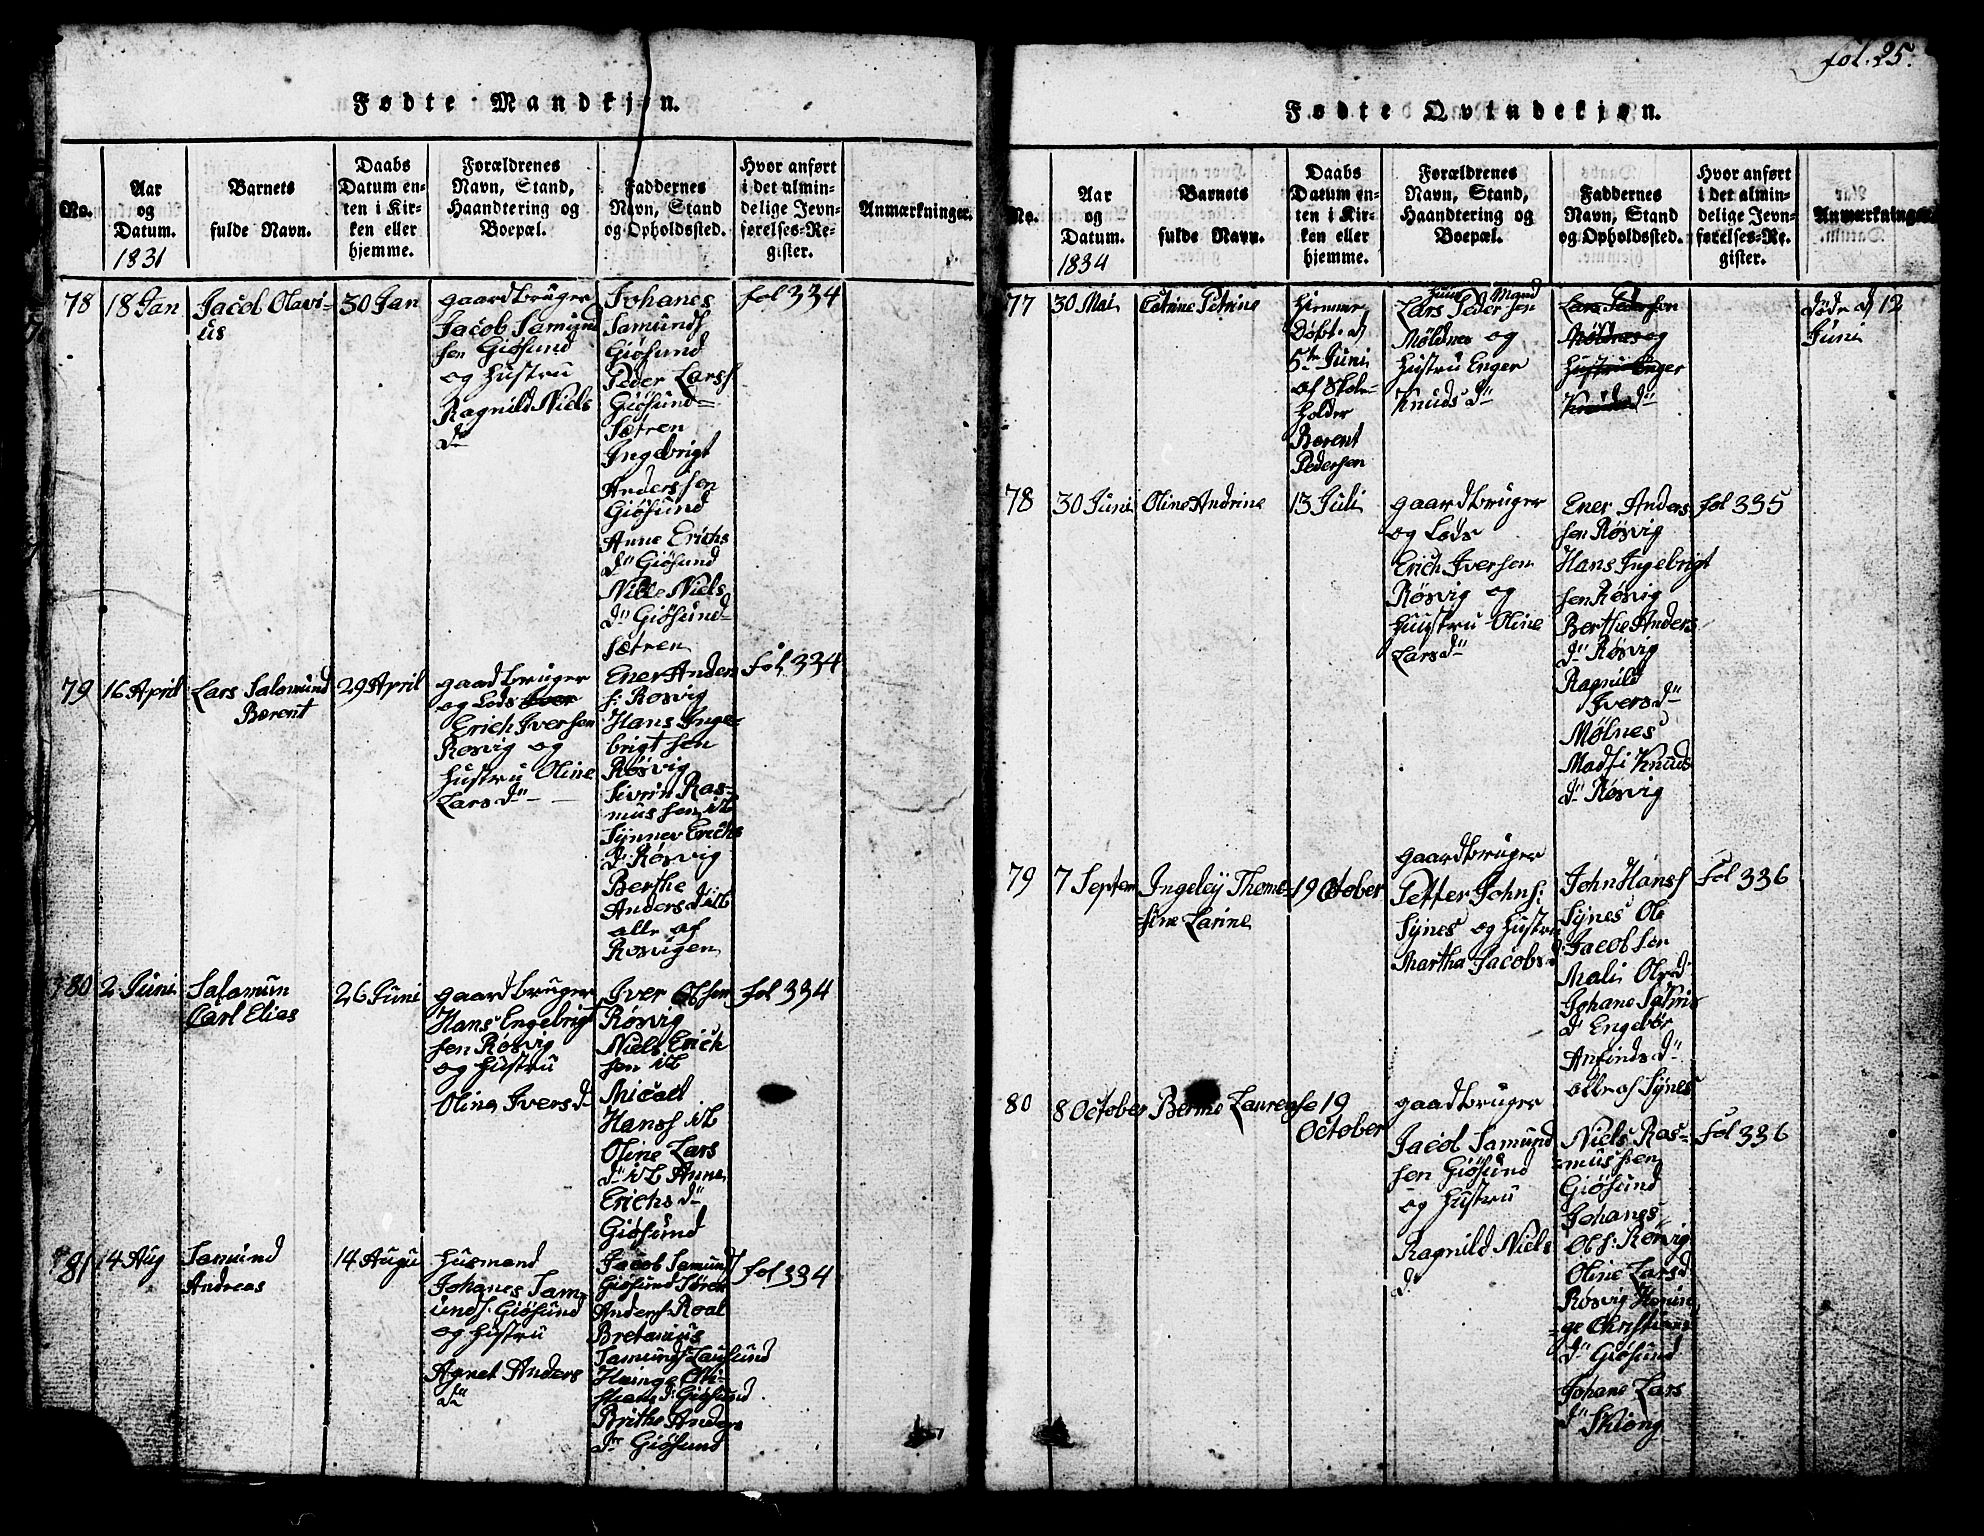 fol. 25.
Fødte Mandkjøn.
No.
Aar
og
Datum.
1831
Barnets
fulde Navn.
Daabs
Datum en-
ten i Kir-
ken eller
hjemme.
Forældrenes
Navn, Stand,
Haandtering og
Boepæl.
Faddernes
Navn, Stand
og Opholdssted.
Hvor anført
i det almin-
delige Jevn-
førelses-Re-
gister.
Anmærkninger.
78
18 Jan
Jacob Olavi-
us
30 Jan
gaardbruger
Jacob Samund
sen Giøsund
og Hustru
Ragnild Niels
Dr
Johanes
Samunds
Giøsund
Peder Larss
Giøsund-
Sætren
Ingebrigt
Anderssen
Giøsund
Anne Erichs
Dr Giøsund
Nille Niels
Dr Giøsund-
sætren
fol 334
79
16 April
Lars Salamund
Berent
29 April
gaardbruger
og Lods Iver
Erich Iversen
Rosvig og
Hustru Oline
Lars Dr
Ener Anders
s: Rosvig
Hans Inge-
brigtsen
Røsvig
Sivert Ras-
mussen ib
Synnev Erichs
Dr Røsvig
Berthe
Anders D ib
alle af
Rosvigen
fol 334
80
2 Juni
Salamun
Carl Elias
26 Juni
gaardbruger
Hans Engebrigt
sen Rosvig
og Hustru
Oline Ivers D
Iver Olsen
Røsvig
Niels Erich
sen ib
Micael
Hanss ib
Oline Lars
Dr ib Anne
Erichs Dr
Giøsund
fol 334
81
14 Aug
Samund
Andreas
14 Augu
Husmand
Johanes Sam-
unds. Giøsund
og Hustru
Agnet Anders
Dr
Jacob Samunds
Giøsund Søren
Anders Roal
Bretanius
Samunds Lausund
Giøsund
Brithe Anders
Dr Giøsund
fol 334
Fødte Qvindekjøn.
No.
Aar
og
Datum.
1834
Barnets
fulde Navn.
Daabs
Datum en-
ten i Kir-
ken eller
hjemme.
Forældrenes
Navn, Stand,
Haandtering og
Boepæl.
Faddernes
Navn, Stand
og Opholdssted.
Hvor anført
i det almin-
delige Jevn-
førelses-Re-
gister.
Anmærkninger
77
30 Mai
Petrine
Hjemme
Døbt d
5te Juni
af Skole-
holder
Berent
Pedersen
Huus Mand
Lars Pedersen
Møldnes og
Hustru Enger
Knuds Dr
Lars Pedersen
Møldnes og
Hustru Enger
Knuds Dr
Døde d 12
Juni
78
30 Juni
Oline Andrine
13 Juli
gaardbruger
og Lods
Erich Iversen
Røsvig og
Huustru Oline
Lars Dr
Ener Anders
sen Røsvig
Hans Ingebrigt
sen Røsvig
Berthe Anders
Dr Røsvig
Ragnild
Ivers Dr
Mølnes
Madsi Knuds
Dr Røsvig
fol 335
79
7 Septem
Ingeley Thome-
sine Larine
19 October
gaardbruger
Petter Johns:
Synes og Hustru
Martha Jacobs D
John Hanss
Synes Ole
Jacobsen
Mali Ols D
Johane
Dr Engebør
Anfinds Dr
alle af Synes
fol 336
80
8 October
Laurense
19
October
gaardbruger
Jacob Samund
sen Giøsund
og Hustru
Ragnild Niels
Dr
Niels Ras-
mussen
Giøsund
Johanes
Ols: Røsvig
Oline Lars D
Røsvig
Christians
Dr Giøsund
Johane Lars
Dr Skiong
fol 336